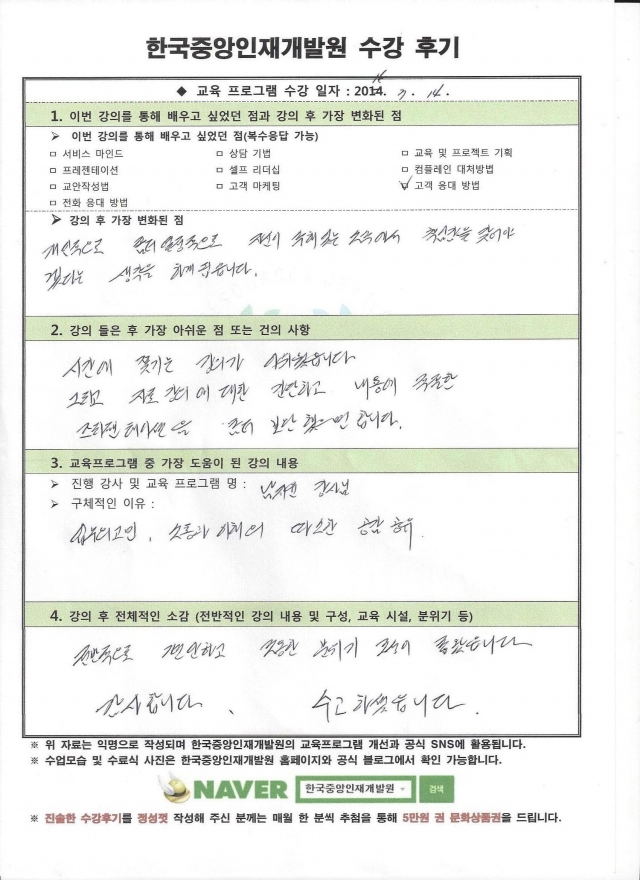 한국중앙인재개발원 수강 후기
◆ 교육 프로그램 수강 일자 : 2014. 7. 14.
1. 이번 강의를 통해 배우고 싶었던 점과 강의 후 가장 변화된 점
➤ 이번 강의를 통해 배우고 싶었던 점(복수응답 가능)
□ 서비스 마인드 □ 상담 기법 □ 교육 및 프로젝트 기획
□ 프레젠테이션 □ 셀프 리더십 □ 컴플레인 대처방법
□ 교안작성법 □ 고객 마케팅 ☑ 고객 응대 방법
□ 전화 응대 방법
➤ 강의 후 가장 변화된 점
개인적으로 좀더 열정적으로 조직에서
겠다는 생각을 하게 됩니다.
2. 강의 들은 후 가장 아쉬운 점 또는 건의 사항
시간에 쫓기는 강의가 아쉬웠습니다
그리고 강의에 대한 간단하고 내용에 충실한
좀더 보안 했으면 합니다.
3. 교육프로그램 중 가장 도움이 된 강의 내용
➤ 진행 강사 및 교육 프로그램 명 : 강사님
➤ 구체적인 이유 :
소통과 이해의 공감 공유.
4. 강의 후 전체적인 소감 (전반적인 강의 내용 및 구성, 교육 시설, 분위기 등)
전반적으로 편안하고 조용한 분위기 조성이 좋았습니다
감사합니다. 수고하셨습니다.
※ 위 자료는 익명으로 작성되며 한국중앙인재개발원의 교육프로그램 개선과 공식 SNS에 활용됩니다.
※ 수업모습 및 수료식 사진은 한국중앙인재개발원 홈페이지와 공식 블로그에서 확인 가능합니다.
NAVER 한국중앙인재개발원 검색
※ 진솔한 수강후기를 정성껏 작성해 주신 분께는 매월 한 분씩 추첨을 통해 5만원 권 문화상품권을 드립니다.